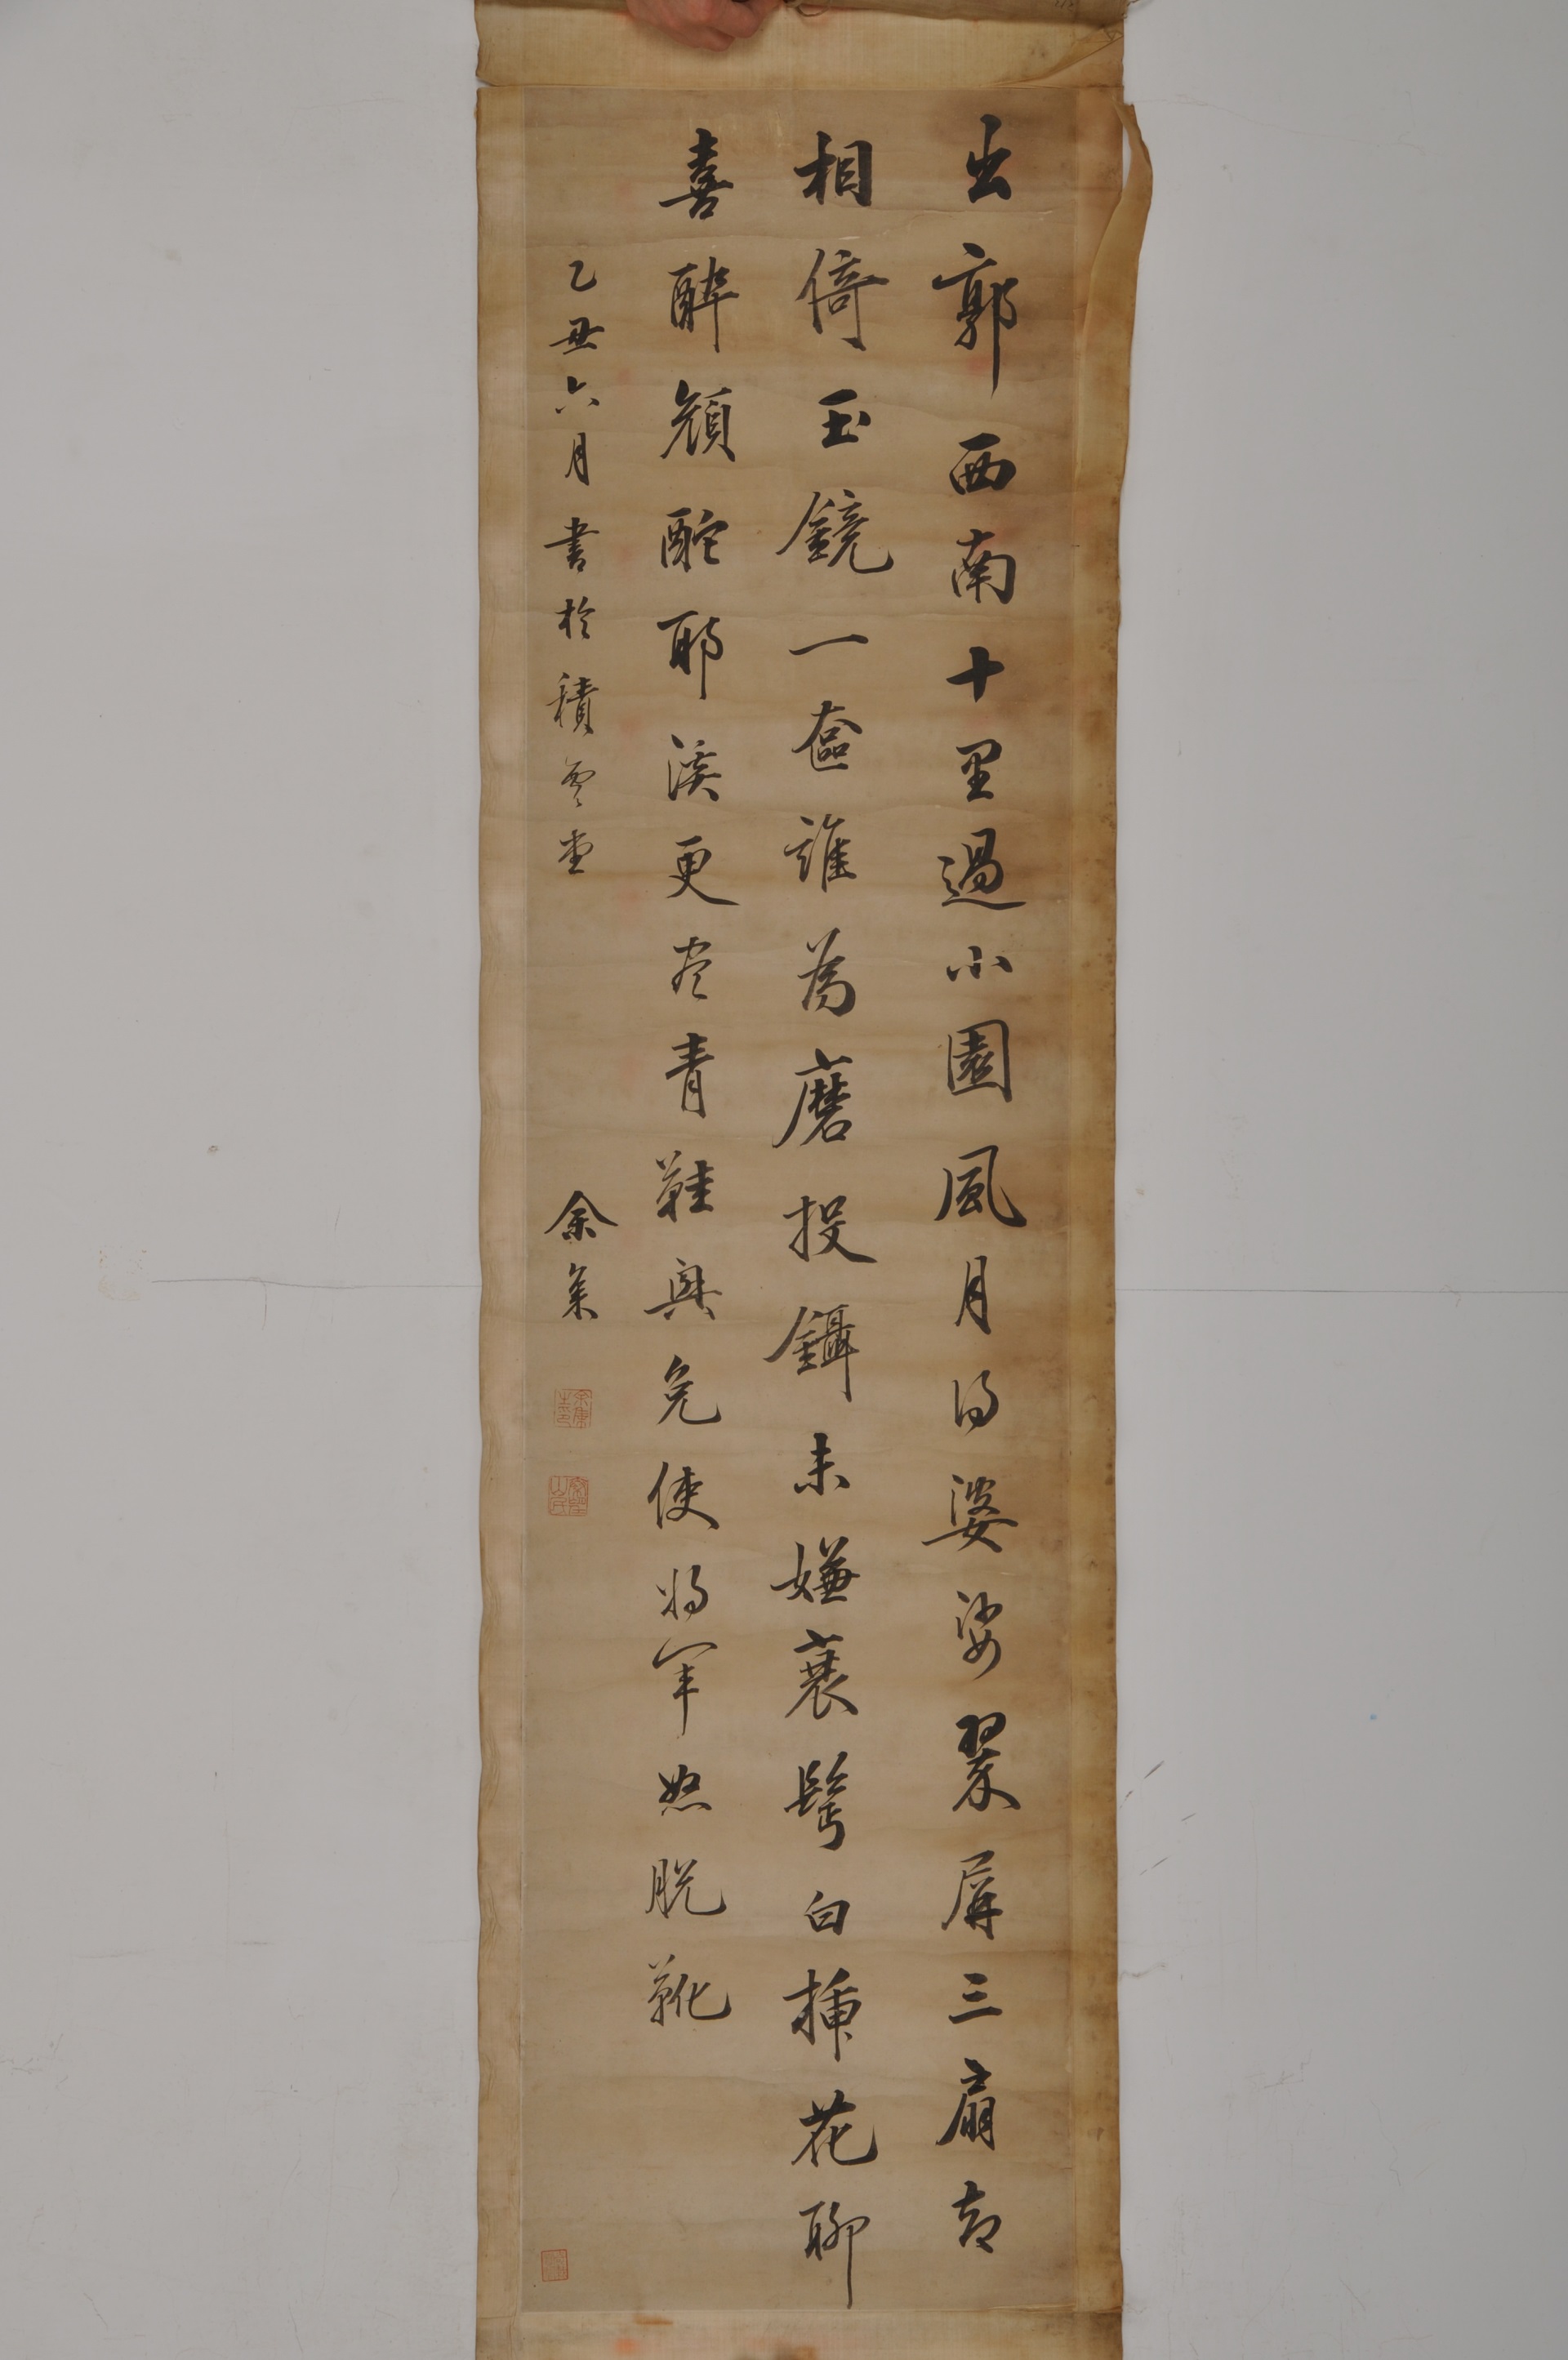 出郭西南十里過小園風月得婆娑翠屏三扇却
相倚玉鏡一奩誰為磨投鑷未嫌衰鬢白插花聊
喜醉顏酡耶溪更尽青鞋興免使將軍怒脫靴
乙丑六月書於積雪堂
余集